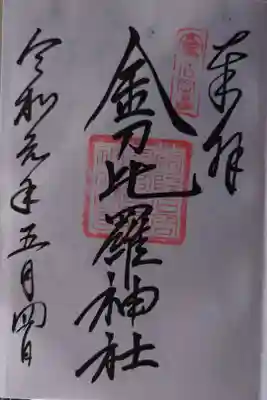 奉拝
金刀比羅神社
令和元年五月四日